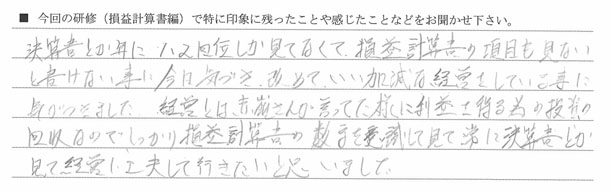 ■ 今回の研修（損益計算書編）で特に印象に残ったことや感じたことなどをお聞かせ下さい。
決算書とか年に1、2回位しか見てなくて、損益計算書の項目も見ない
と書けない事に今日気づき、改めて、いい加減な経営をしている事に
気がつきました。経営とは、赤岩さんが言ってた様に利益を得る為の投資の
回収なのでしっかり損益計算書の数字を意識して見て常に決算書とか
見て経営に工夫して行きたいと思いました。